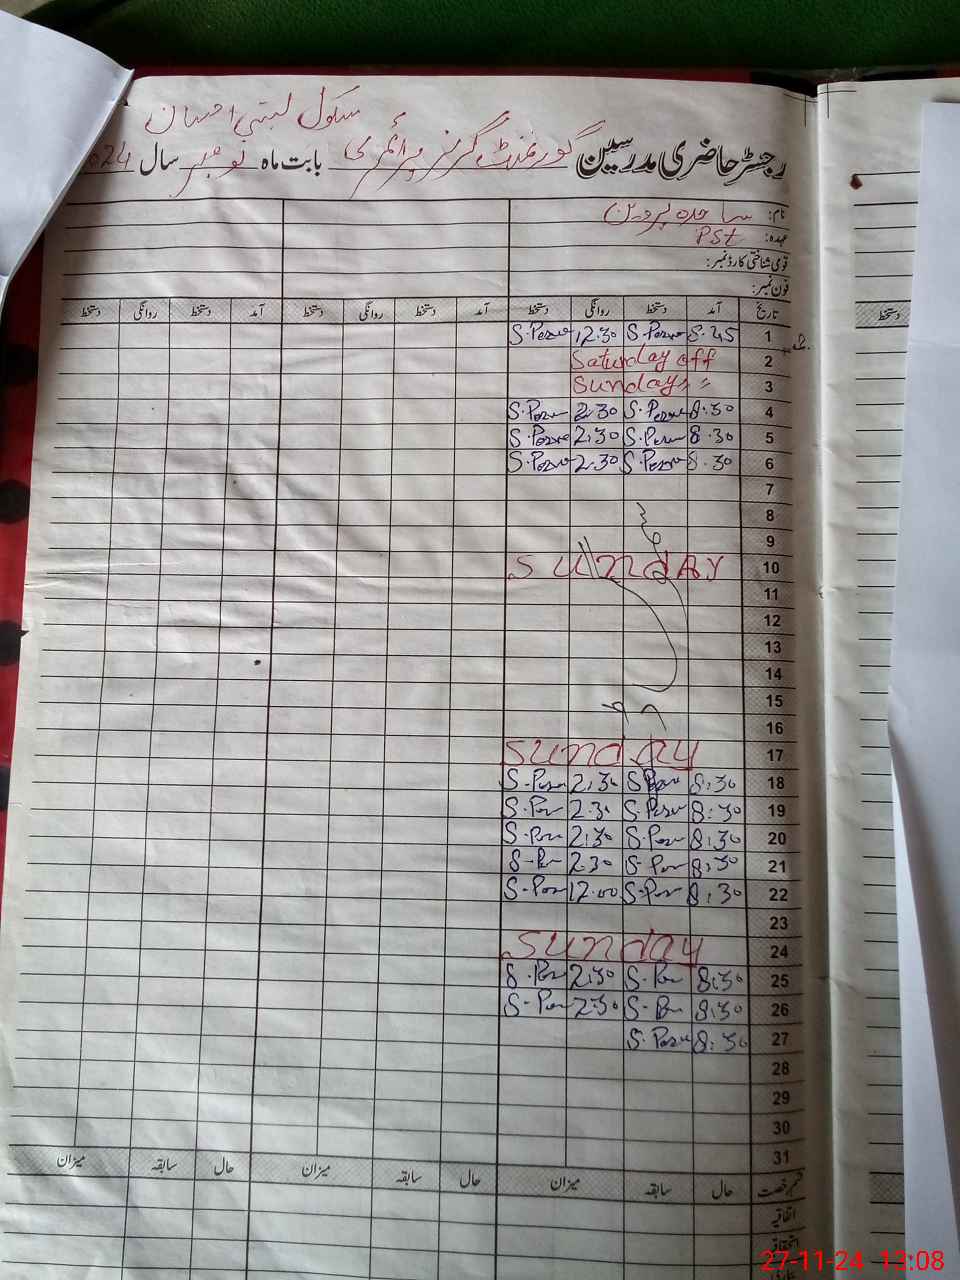 سکول بستی احسان
رجسٹر حاضری مدرسین گورنمنٹ گرلز پرائمری بابت ماہ نومبر سال 2024
نام: ساجدہ پروین
عہدہ: PST
قومی شناختی کارڈ نمبر:
فون نمبر:
تاریخ آمد دستخط روانگی دستخط آمد دستخط روانگی دستخط آمد دستخط روانگی دستخط
1 8:45 S.Perv 12:30 S.Perv
2 Saturday off
3 Sunday " "
4 8:30 S.Perv 2:30 S.Perv
5 8:30 S.Perv 2:30 S.Perv
6 8:30 S.Perv 2:30 S.Perv
7
8
9
10 SUNDAY
11
12
13
14
15
16
17 Sunday
18 8:30 S.Perv 2:30 S.Perv
19 8:30 S.Perv 2:30 S.Per
20 8:30 S.Per 2:30 S.Per
21 8:30 S.Per 2:30 S.Per
22 8:30 S.Per 12:00 S.Per
23
24 Sunday
25 8:30 S.Per 2:30 S.Per
26 8:30 S.Per 2:30 S.Per
27 8:30 S.Perv
28
29
30
31
قسم رخصت حال سابقہ میزان حال سابقہ میزان حال سابقہ میزان
اتفاقیہ
استحقاقیہ
دستخط
27-11-24 13:08